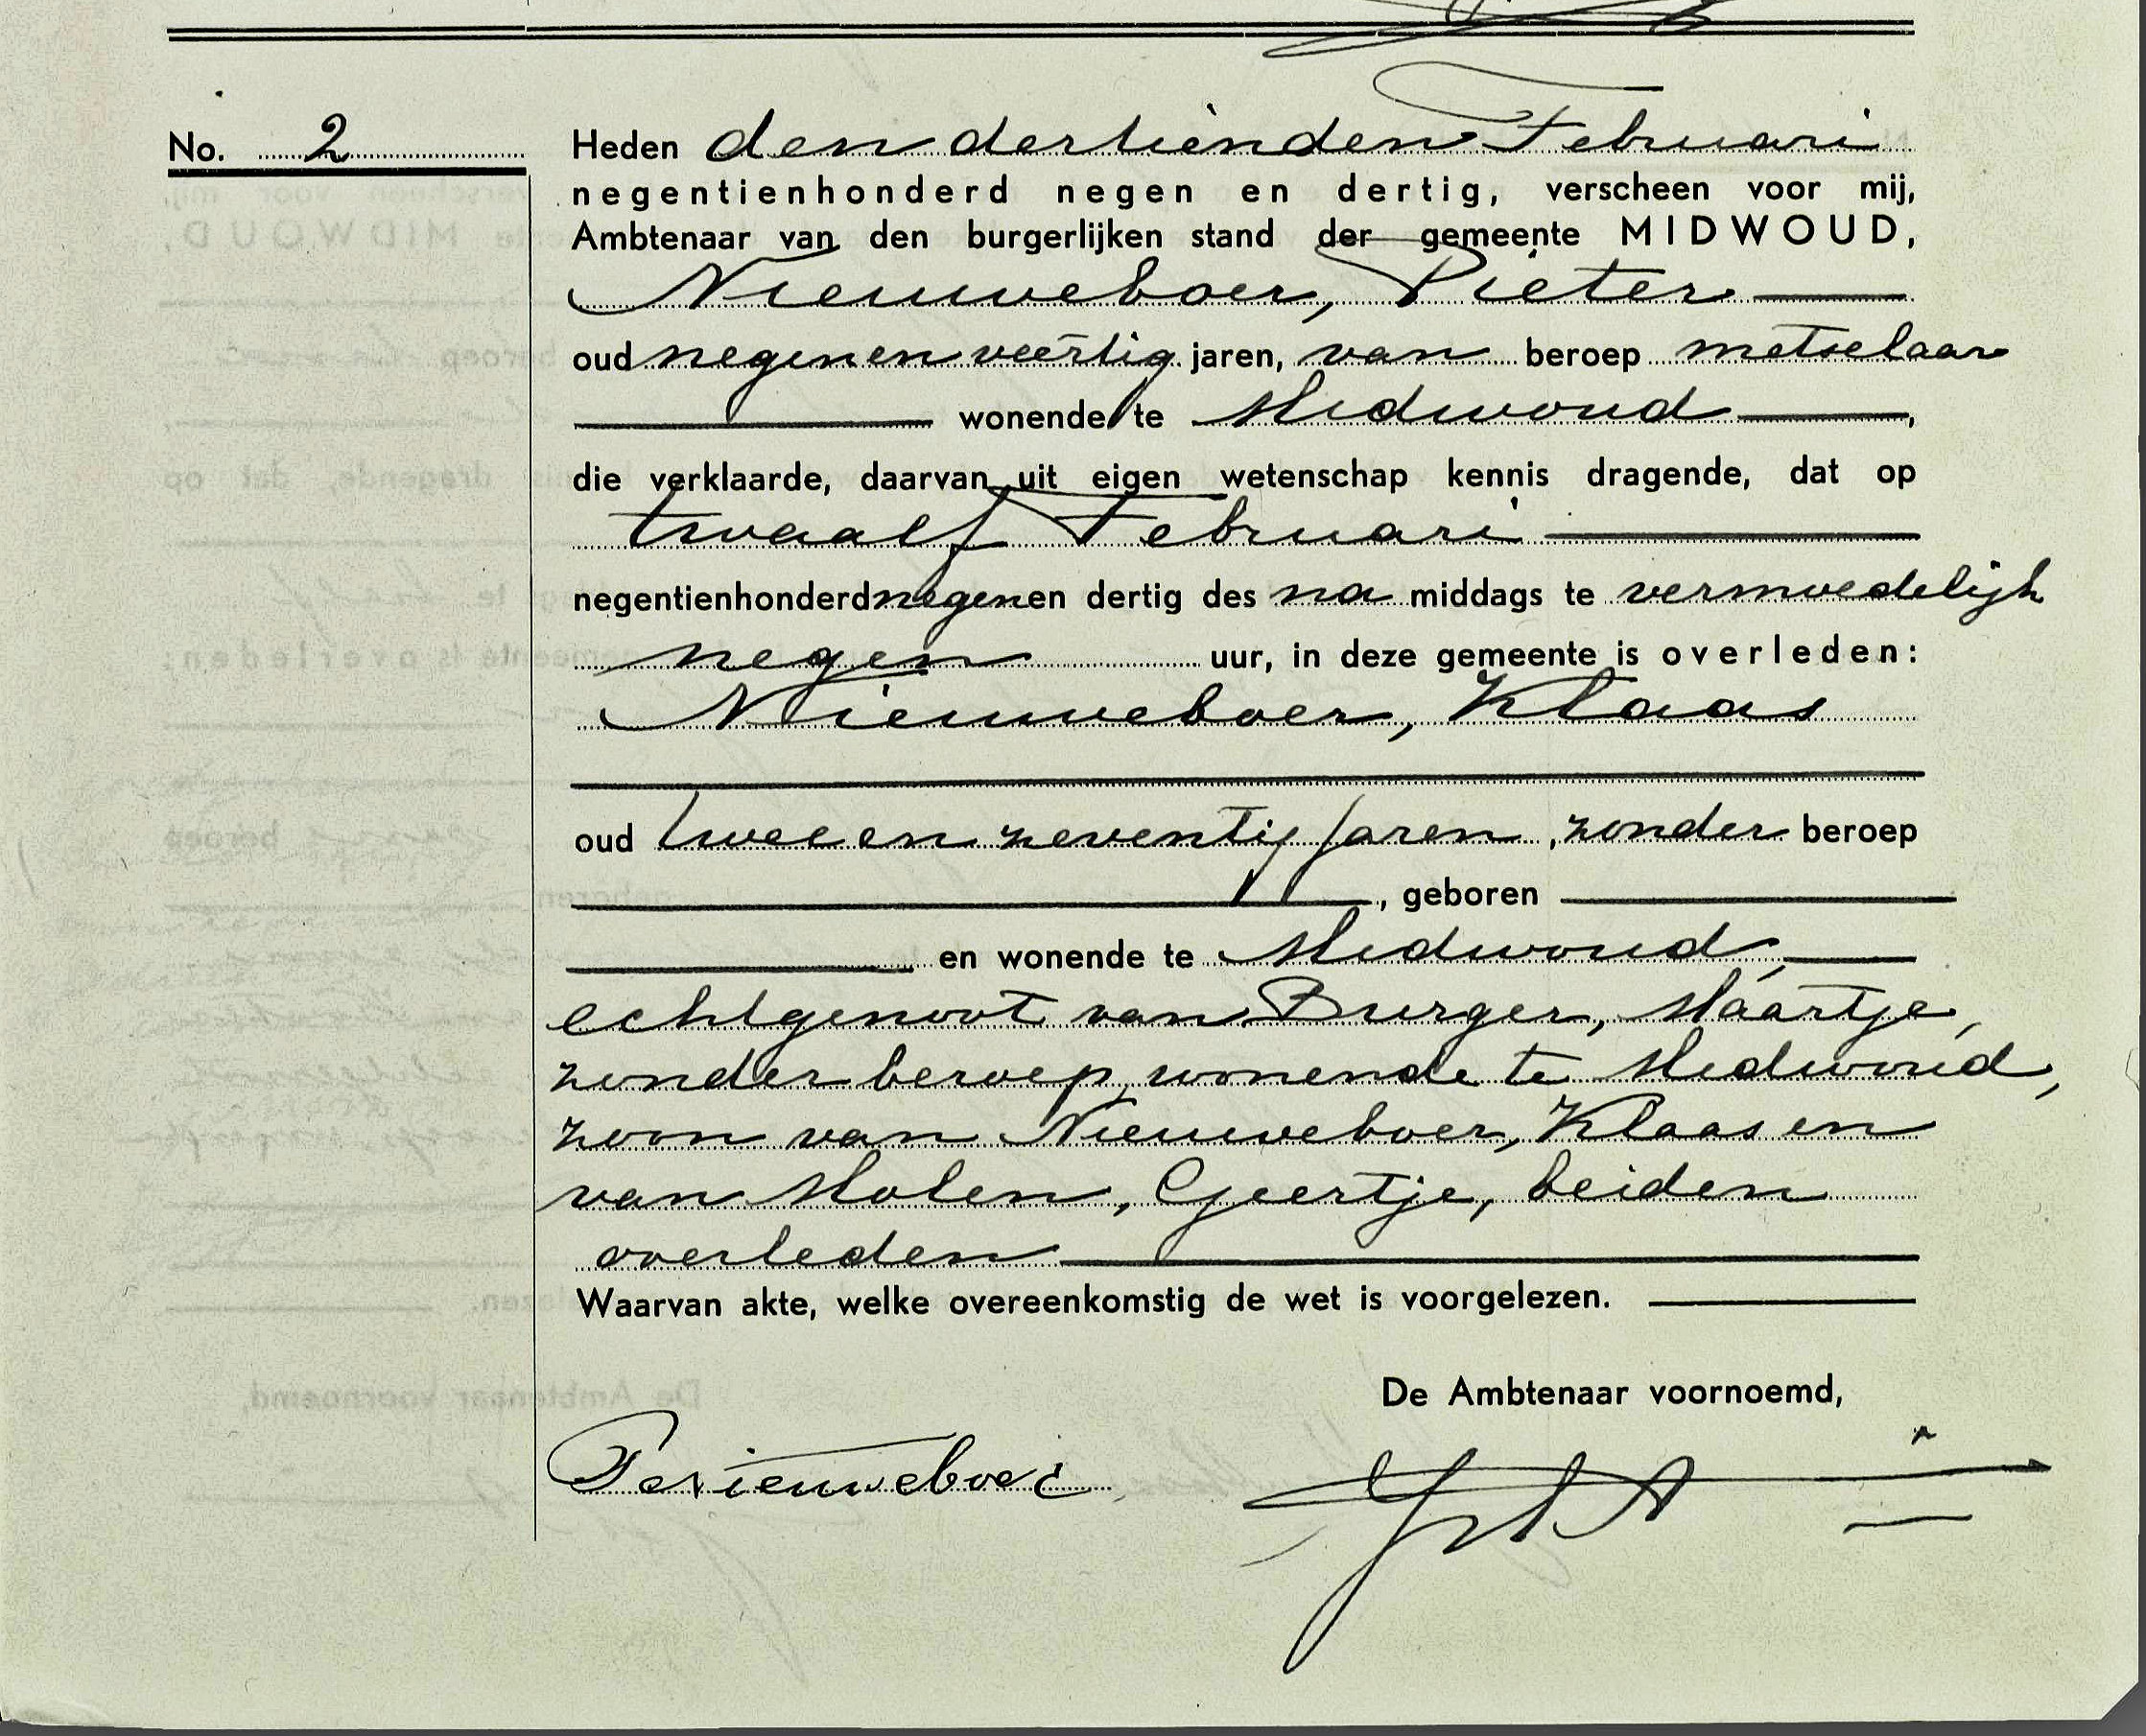 No. 2
Heden den dertienden Februari
negentienhonderd negen en dertig, verscheen voor mij,
Ambtenaar van den burgerlijken stand der gemeente MIDWOUD,
Nieuweboer, Pieter
oud negenenveertig jaren, van beroep metselaar
wonende te Midwoud,
die verklaarde, daarvan uit eigen wetenschap kennis dragende, dat op
twaalf Februari
negentienhonderdnegenen dertig des na middags te vermoedelijk
negen uur, in deze gemeente is overleden:
Nieuweboer, Klaas
oud tweeenzeventig jaren, zonder beroep
, geboren
en wonende te Midwoud,
echtgenoot van Burger, Maartje,
zonder beroep, wonende te Midwoud,
zoon van Nieuweboer, Klaas en
van Molen, Geertje, beiden
overleden
Waarvan akte, welke overeenkomstig de wet is voorgelezen.
De Ambtenaar voornoemd,
P. Nieuweboer